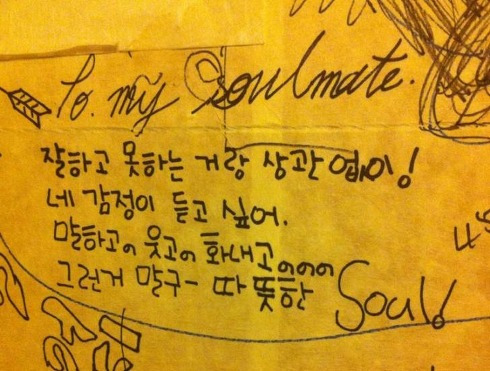 To. my Soulmate.
잘하고 못하는 거랑 상관 없이!
네 감정이 듣고 싶어.
말하고 웃고 화내고
그런거 말구- 따뜻한 Soul!